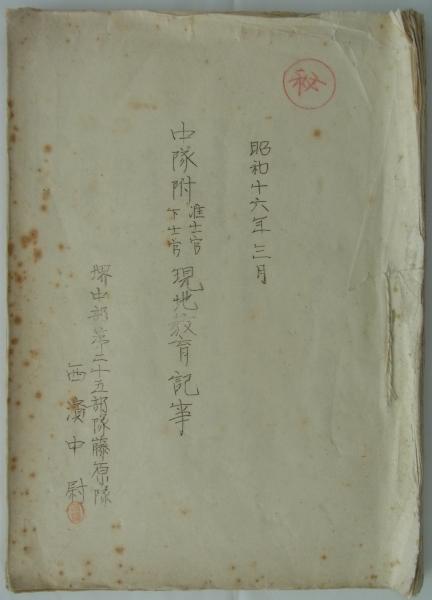 秘
昭和十六年三月
中隊附准士官下士官現地教育記事
堺中部第二十五部隊藤原隊
西濱中尉